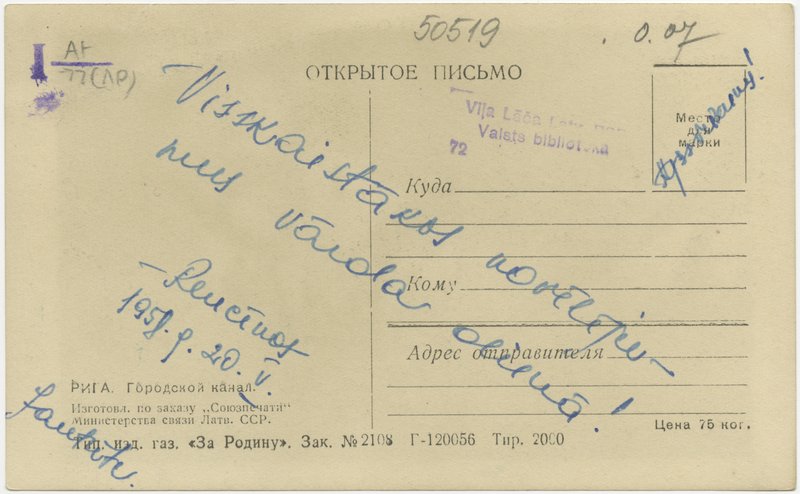 50519
0.07
A1
77(ЛР)
ОТКРЫТОЕ ПИСЬМО
Место
для
марки
Viļa Lāča
Valsts bibliotēka
72
Visskaistākos novēlēju-
mus vārda dienā!
Куда
Кому
Адрес отправителя
1958.g. 20.V.
РИГА. Городской канал.
Изготовл. по заказу „Союзпечати“
Министерства связи Латв. ССР.
Тип. изд. газ. «За Родину». Зак. № 2108 Г-120056 Тир. 2000
Цена 75 коп.